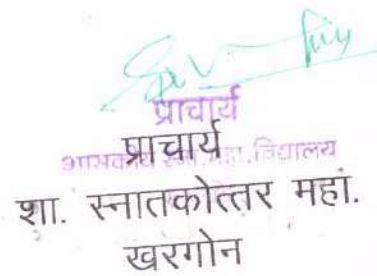 प्राचार्य
प्राचार्य
शासकीय स्ना. महा. विद्यालय
शा. स्नातकोत्तर महा.
खरगोन